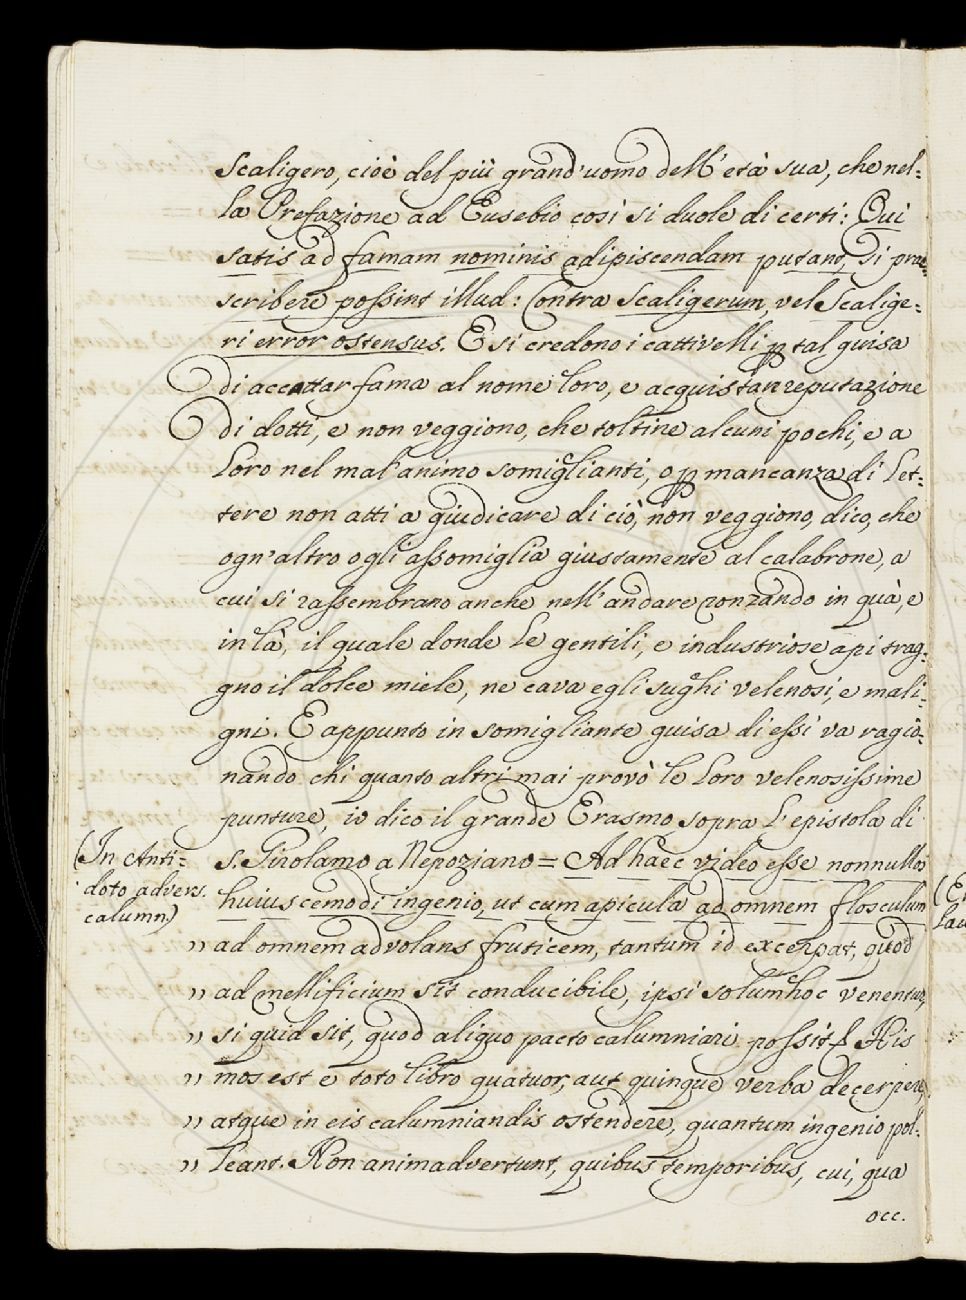 Scaligero, cioè del più grand'uomo dell'età sua, che nel-
la Prefazione ad Eusebio così si duole di certi: Qui
satis ad famam nominis adipiscendam putant, si prae-
scribere possint illud: Contra Scaligerum, vel Scalige-
ri error ostensus. E si credono i cattivelli p tal guisa
di accattar fama al nome loro, e acquistar reputazione
di dotti, e non veggiono, che toltine alcuni pochi, e a
Loro nel mal'animo somiglianti, o p mancanza di Let-
tere non atti a giudicare di ciò, non veggiono, dico, che
ogn'altro ogli assomiglia giustamente al calabrone, a
cui si rassembrano anche nell'andare ronzando in quà, e
in là, il quale donde Le gentili, e industriose api trag-
gno il dolce miele, ne cava egli sughi velenosi, e mali-
gni. E appunto in somigliante guisa di essi va ragio-
nando chi quanto altri mai provò le Loro velenosissime
punture, io dico il grande Erasmo sopra L'epistola di
(In Anti-
doto advers.
calumn)
S. Girolamo a Nepoziano = Ad haec video esse nonnullos
huiuscemodi ingenio, ut cum apicula ad omnem flosculum
" ad omnem advolans fruticem, tantum id excerpat, quod
" ad mellificium sit conducibile, ipsi solum hoc venentur,
" si quid sit, quod aliquo pacto calumniari possit. His
" mos est e toto libro quatuor, aut quinque verba decerpere,
" atque in eis calumniandis ostendere, quantum ingenio pol-
" leant. Non animadvertunt, quibus temporibus, cui, qua
occ.